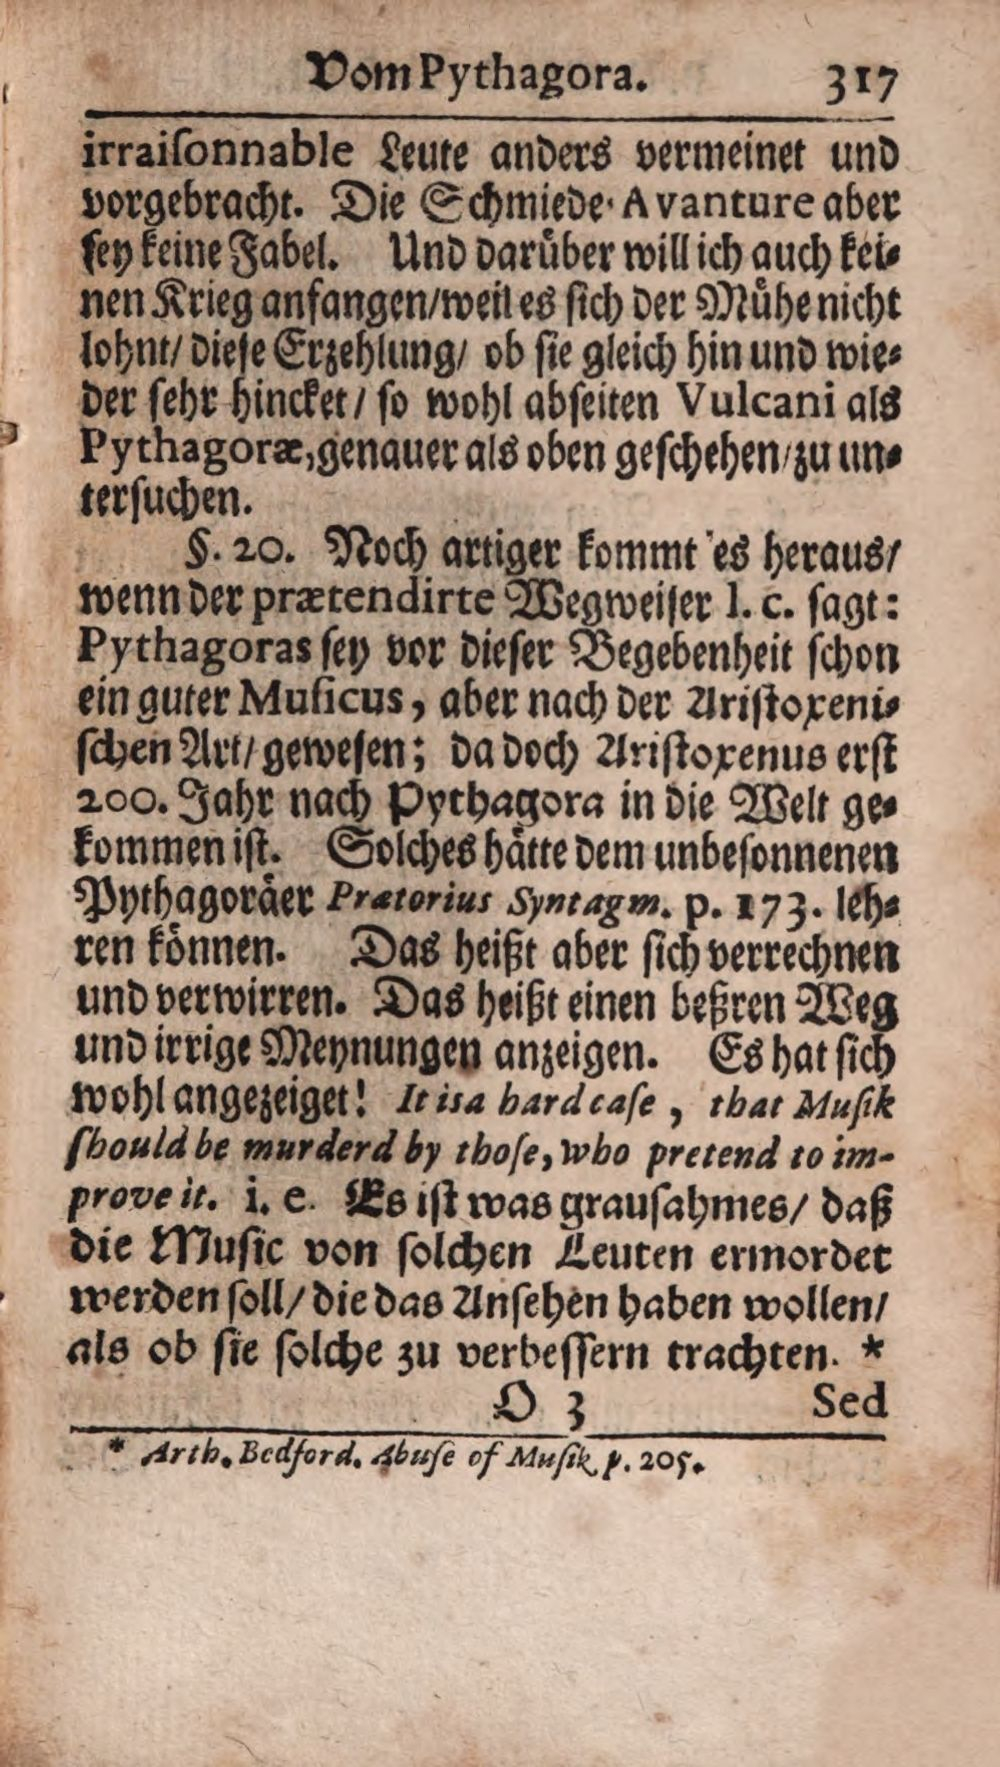 Vom Pythagora. 317
irraiſonnable Leute anders vermeinet und
vorgebracht. Die Schmiede-Avanture aber
ſey keine Fabel. Und darüber will ich auch kei-
nen Krieg anfangen/weil es ſich der Mühe nicht
lohnt/ dieſe Erzehlung/ ob ſie gleich hin und wie-
der ſehr hincket/ ſo wohl abſeiten Vulcani als
Pythagoræ, genauer als oben geſchehen/zu un-
terſuchen.
§. 20. Noch artiger kommt es heraus/
wenn der prætendirte Wegweiſer l. c. ſagt:
Pythagoras ſey vor dieſer Begebenheit ſchon
ein guter Muſicus, aber nach der Ariſtoxeni-
ſchen Art/ geweſen; da doch Ariſtoxenus erſt
200. Jahr nach Pythagora in die Welt ge-
kommen iſt. Solches hätte dem unbeſonnenen
Pythagoräer Prætorius Syntagm. p. 173. leh-
ren können. Das heißt aber ſich verrechnen
und verwirren. Das heißt einen beßren Weg
und irrige Meynungen anzeigen. Es hat ſich
wohl angezeiget! It is a hard caſe, that Muſik
ſhould be murderd by thoſe, who pretend to im-
prove it. i. e. Es iſt was grauſahmes/ daß
die Muſic von ſolchen Leuten ermordet
werden ſoll/ die das Anſehen haben wollen/
als ob ſie ſolche zu verbeſſern trachten. *
O 3 Sed
* Arth. Bedford. Abuſe of Muſik p. 205.